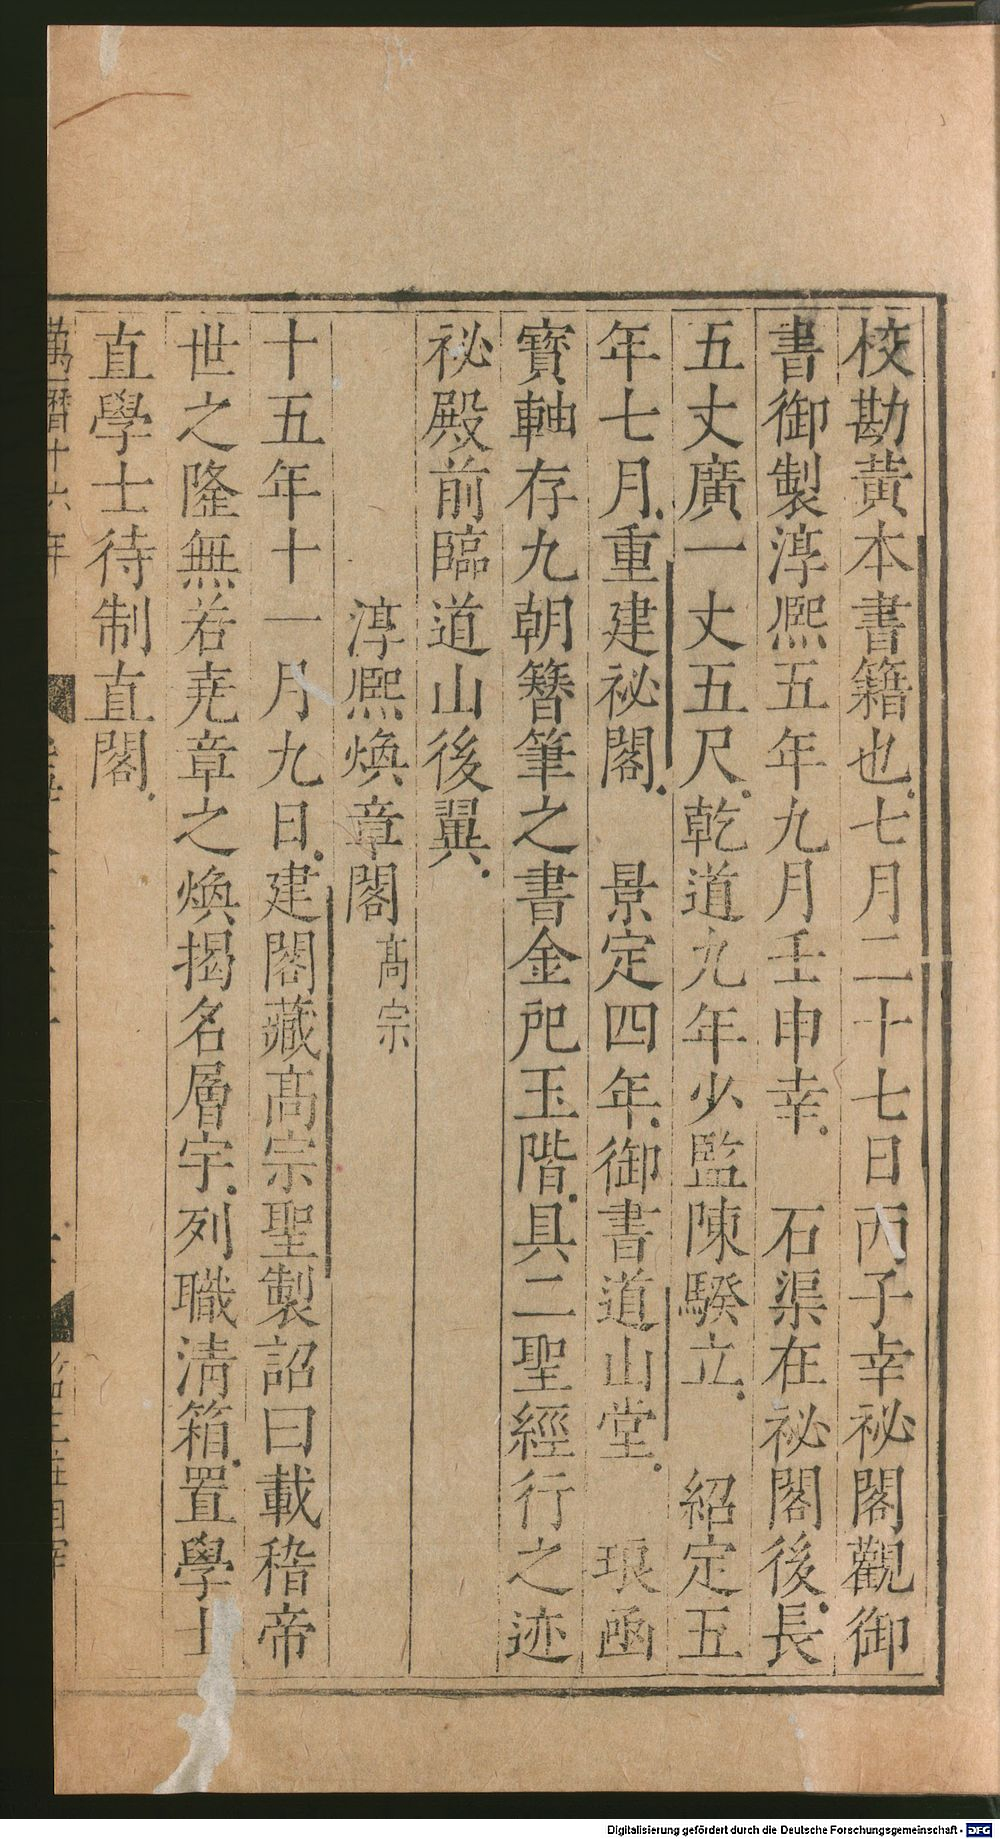 校勘黃本書籍也七月二十七日丙子幸祕閣觀御
書御製淳熙五年九月壬申幸 石渠在祕閣後長
五丈廣一丈五尺乾道九年少監陳騤立 紹定五
年七月重建祕閣 景定四年御書道山堂 琅函
寶軸存九朝簪筆之書金戺玉階具二聖經行之迹
祕殿前臨道山後翼
淳熙煥章閣高宗
十五年十一月九日建閣藏高宗聖製詔曰載稽帝
世之隆無若堯章之煥揭名層宇列職淸箱置學士
直學士待制直閣
萬曆十六年
Digitalisierung gefördert durch die Deutsche Forschungsgemeinschaft - DFG